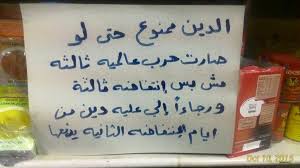 الدين ممنوع حتى لو
صارت حرب عالميه ثالثه
مش بس إنتفاضه ثالثة
ورجاءاً إلي عليه دين من
أيام الإنتفاضه الثانيه يدفعها